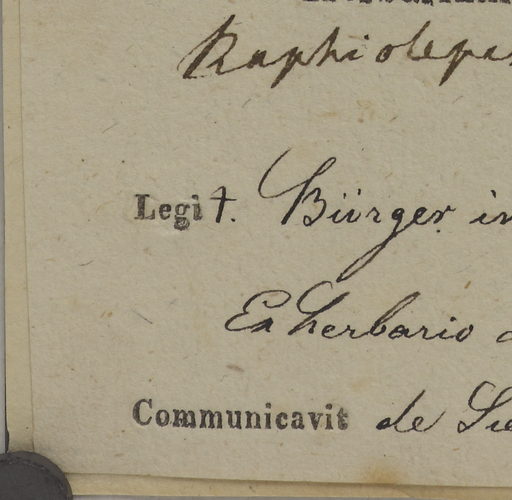 Raphiolepis
Legit. Bürger in
Ex herbario
Communicavit de Sie